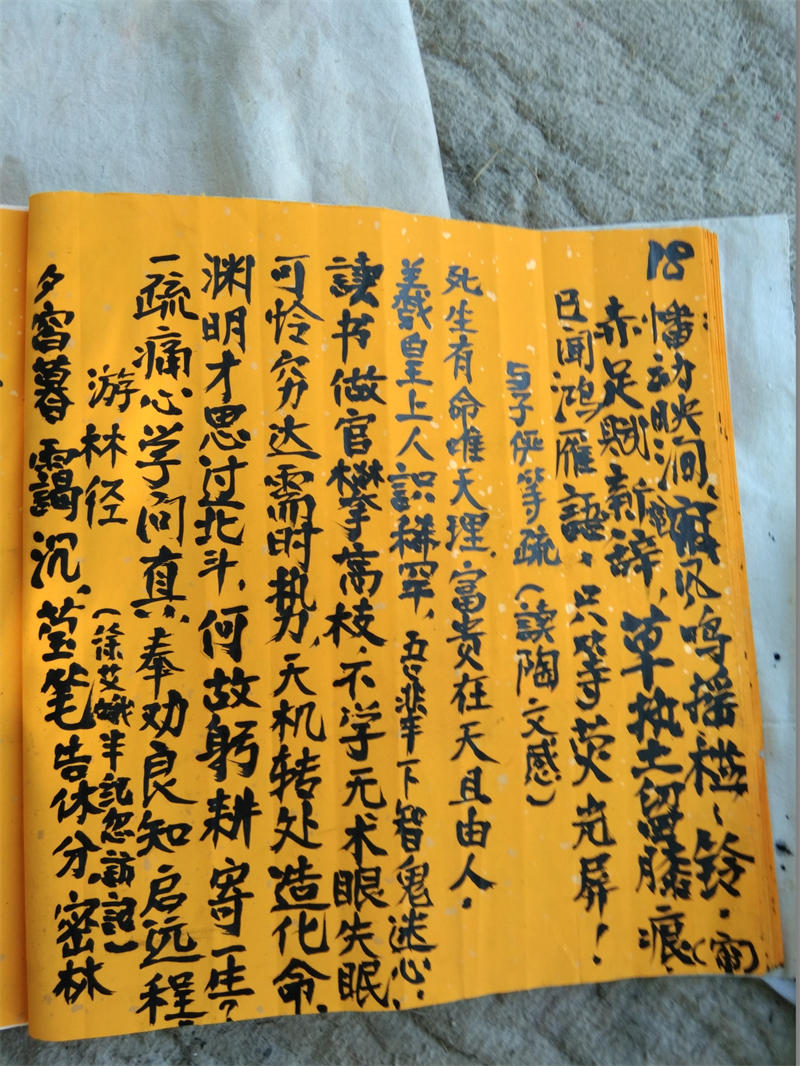 18
幡动映涧,癫风鸣摇樾、铃。(窗)
赤足赋新辞,草执土留膝痕。
已闻鸿雁语,只等荧光屏!
与子俨等疏(读陶文感)
死生有命唯天理,富贵在天且由人。
羲皇上人识稀罕,吾非下智鬼迷心,
读书做官攀高枝,不学无术眼失眠
可怜穷达需时势,天机转处造化命,
渊明才思过北斗,何故躬耕寄一生?
一疏痛心学问真,奉劝良知启远程,
游林径(徐艾娥丰记忽访诏)
夕窗暮霭沉,莹笔告休分密林